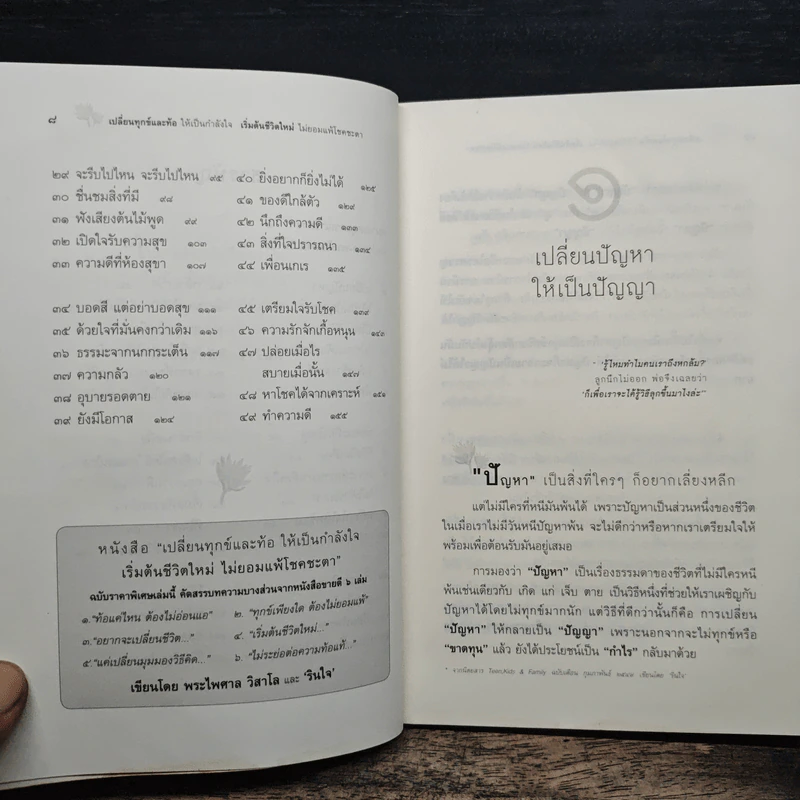 ๘
เปลี่ยนทุกข์และท้อ ให้เป็นกำลังใจ เริ่มต้นชีวิตใหม่ ไม่ยอมแพ้โชคชะตา
๒๙ จะรีบไปไหน จะรีบไปไหน ๙๕
๓๐ ชื่นชมสิ่งที่มี ๙๘
๓๑ ฟังเสียงต้นไม้พูด ๙๙
๓๒ เปิดใจรับความสุข ๑๐๓
๓๓ ความดีที่ห้องสุขา ๑๐๗
๓๔ บอดสี แต่อย่าบอดสุข ๑๑๑
๓๕ ด้วยใจที่มั่นคงกว่าเดิม ๑๑๖
๓๖ ธรรมะจากนกกระเต็น ๑๑๗
๓๗ ความกลัว ๑๒๐
๓๘ อุบายรอดตาย ๑๒๑
๓๙ ยังมีโอกาส ๑๒๔
๔๐ ยิ่งอยากก็ยิ่งไม่ได้ ๑๒๕
๔๑ ของดีใกล้ตัว ๑๒๙
๔๒ นึกถึงความดี ๑๓๓
๔๓ สิ่งที่ใจปรารถนา ๑๓๔
๔๔ เพื่อนเกเร ๑๓๕
๔๕ เตรียมใจรับโชค ๑๓๙
๔๖ ความรักจักเกื้อหนุน ๑๔๓
๔๗ ปล่อยเมื่อไร
สบายเมื่อนั้น ๑๔๗
๔๘ หาโชคได้จากเคราะห์ ๑๕๑
๔๙ ทำความดี ๑๕๕
หนังสือ "เปลี่ยนทุกข์และท้อ ให้เป็นกำลังใจ
เริ่มต้นชีวิตใหม่ ไม่ยอมแพ้โชคชะตา"
ฉบับราคาพิเศษเล่มนี้ คัดสรรบทความบางส่วนจากหนังสือขายดี ๖ เล่ม
๑."ท้อแค่ไหน ต้องไม่อ่อนแอ" ๒. "ทุกข์เพียงใด ต้องไม่ยอมแพ้"
๓."อยากจะเปลี่ยนชีวิต..." ๔. "เริ่มต้นชีวิตใหม่..."
๕."แค่เปลี่ยนมุมมองวิธีคิด..." ๖. "ไม่ระย่อต่อความท้อแท้..."
เขียนโดย พระไพศาล วิสาโล และ 'รินใจ'
๑
เปลี่ยนปัญหา
ให้เป็นปัญญา
"รู้ไหมทำไมคนเราถึงหกล้ม?'
ลูกนึกไม่ออก พ่อจึงเฉลยว่า
'ก็เพื่อเราจะได้รู้วิธีลุกขึ้นมาไงล่ะ'"
"ปัญหา" เป็นสิ่งที่ใครๆ ก็อยากเลี่ยงหลีก
แต่ไม่มีใครที่หนีมันพ้นได้ เพราะปัญหาเป็นส่วนหนึ่งของชีวิต
ในเมื่อเราไม่มีวันหนีปัญหาพ้น จะไม่ดีกว่าหรือหากเราเตรียมใจให้
พร้อมเพื่อต้อนรับมันอยู่เสมอ
การมองว่า "ปัญหา" เป็นเรื่องธรรมดาของชีวิตที่ไม่มีใครหนี
พ้นเช่นเดียวกับ เกิด แก่ เจ็บ ตาย เป็นวิธีหนึ่งที่ช่วยให้เราเผชิญกับ
ปัญหาได้โดยไม่ทุกข์มากนัก แต่วิธีที่ดีกว่านั้นก็คือ การเปลี่ยน
"ปัญหา" ให้กลายเป็น "ปัญญา" เพราะนอกจากจะไม่ทุกข์หรือ
"ขาดทุน" แล้ว ยังได้ประโยชน์เป็น "กำไร" กลับมาด้วย
* จากนิตยสาร & Family ฉบับเดือน กุมภาพันธ์ เขียนโดย 'รินใจ'